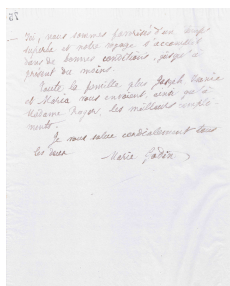 Ici, nous sommes favorisés d'un temps
superbe et notre voyage s'accomplit
dans de bonnes conditions, jusqu'à
présent du moins.
Toute la famille plus Joseph,
et Maria vous envoient, ainsi qu'à
Madame Royer, les meilleurs compli-
ments.
Je vous salue cordialement tous
les deux.
Marie Godin